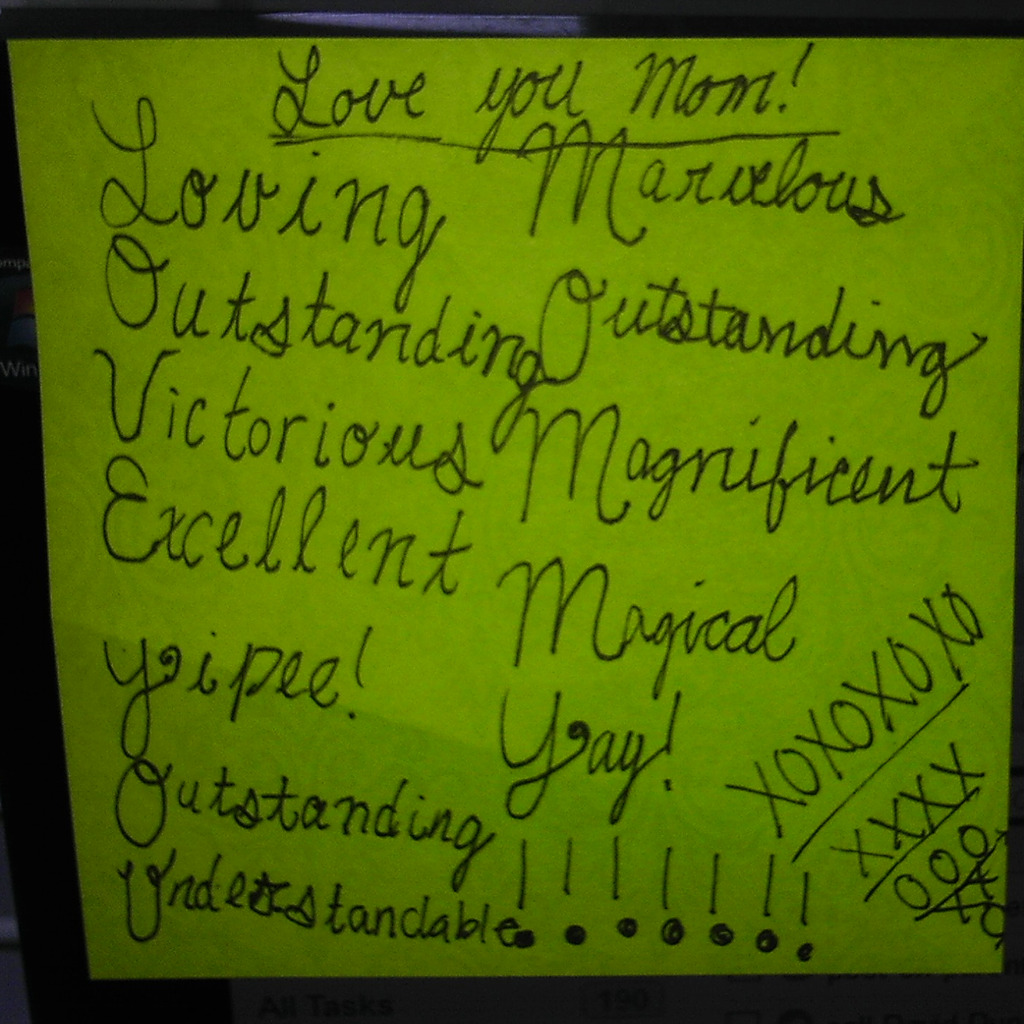 Love you Mom!
Loving
Outstanding
Victorious
Excellent
Yipee!
Outstanding
Understandable
Marvelous
Outstanding
Magnificent
Magical
Yay!
!!!!!!!
XOXOXOXO
XXXX
OOO
Win
All Tasks
190